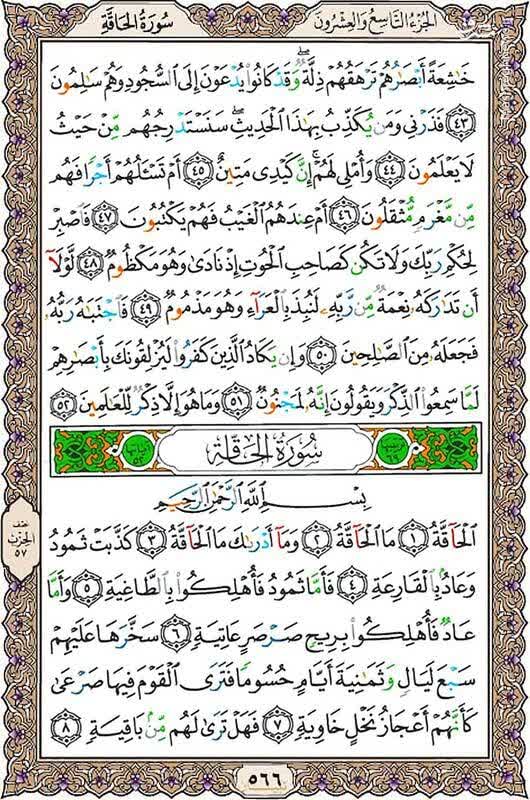 الجُزءُ التَّاسِعُ وَالعِشرُونَ
سُورَةُ الحَاقَّةِ
خَٰشِعَةً أَبْصَٰرُهُمْ تَرْهَقُهُمْ ذِلَّةٌ ۖ وَقَدْ كَانُوا۟ يُدْعَوْنَ إِلَى ٱلسُّجُودِ وَهُمْ سَٰلِمُونَ
٤٣ فَذَرْنِى وَمَن يُكَذِّبُ بِهَٰذَا ٱلْحَدِيثِ ۖ سَنَسْتَدْرِجُهُم مِّنْ حَيْثُ
لَا يَعْلَمُونَ ٤٤ وَأُمْلِى لَهُمْ ۚ إِنَّ كَيْدِى مَتِينٌ ٤٥ أَمْ تَسْـَٔلُهُمْ أَجْرًا فَهُم
مِّن مَّغْرَمٍ مُّثْقَلُونَ ٤٦ أَمْ عِندَهُمُ ٱلْغَيْبُ فَهُمْ يَكْتُبُونَ ٤٧ فَٱصْبِرْ
لِحُكْمِ رَبِّكَ وَلَا تَكُن كَصَاحِبِ ٱلْحُوتِ إِذْ نَادَىٰ وَهُوَ مَكْظُومٌ ٤٨ لَّوْلَآ
أَن تَدَٰرَكَهُۥ نِعْمَةٌ مِّن رَّبِّهِۦ لَنُبِذَ بِٱلْعَرَآءِ وَهُوَ مَذْمُومٌ ٤٩ فَٱجْتَبَٰهُ رَبُّهُۥ
فَجَعَلَهُۥ مِنَ ٱلصَّٰلِحِينَ ٥٠ وَإِن يَكَادُ ٱلَّذِينَ كَفَرُوا۟ لَيُزْلِقُونَكَ بِأَبْصَٰرِهِمْ
لَمَّا سَمِعُوا۟ ٱلذِّكْرَ وَيَقُولُونَ إِنَّهُۥ لَمَجْنُونٌ ٥١ وَمَا هُوَ إِلَّا ذِكْرٌ لِّلْعَٰلَمِينَ ٥٢
سُورَةُ الحَاقَّةِ
بِسْمِ ٱللَّهِ ٱلرَّحْمَٰنِ ٱلرَّحِيمِ
ٱلْحَآقَّةُ ١ مَا ٱلْحَآقَّةُ ٢ وَمَآ أَدْرَىٰكَ مَا ٱلْحَآقَّةُ ٣ كَذَّبَتْ ثَمُودُ
وَعَادٌۢ بِٱلْقَارِعَةِ ٤ فَأَمَّا ثَمُودُ فَأُهْلِكُوا۟ بِٱلطَّاغِيَةِ ٥ وَأَمَّا
عَادٌ فَأُهْلِكُوا۟ بِرِيحٍ صَرْصَرٍ عَاتِيَةٍ ٦ سَخَّرَهَا عَلَيْهِمْ
سَبْعَ لَيَالٍ وَثَمَٰنِيَةَ أَيَّامٍ حُسُومًا فَتَرَى ٱلْقَوْمَ فِيهَا صَرْعَىٰ
كَأَنَّهُمْ أَعْجَازُ نَخْلٍ خَاوِيَةٍ ٧ فَهَلْ تَرَىٰ لَهُم مِّنۢ بَاقِيَةٍ ٨
الحِزْبِ
٥٧
٥٦٦